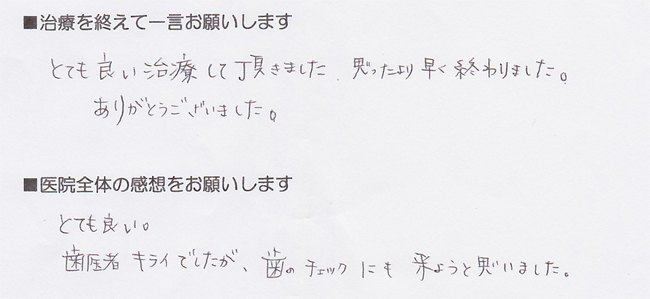 ■治療を終えて一言お願いします
とても良い治療して頂きました。思ったより早く終わりました。
ありがとうございました。
■医院全体の感想をお願いします
とても良い。
歯医者キライでしたが、歯のチェックにも来ようと思いました。